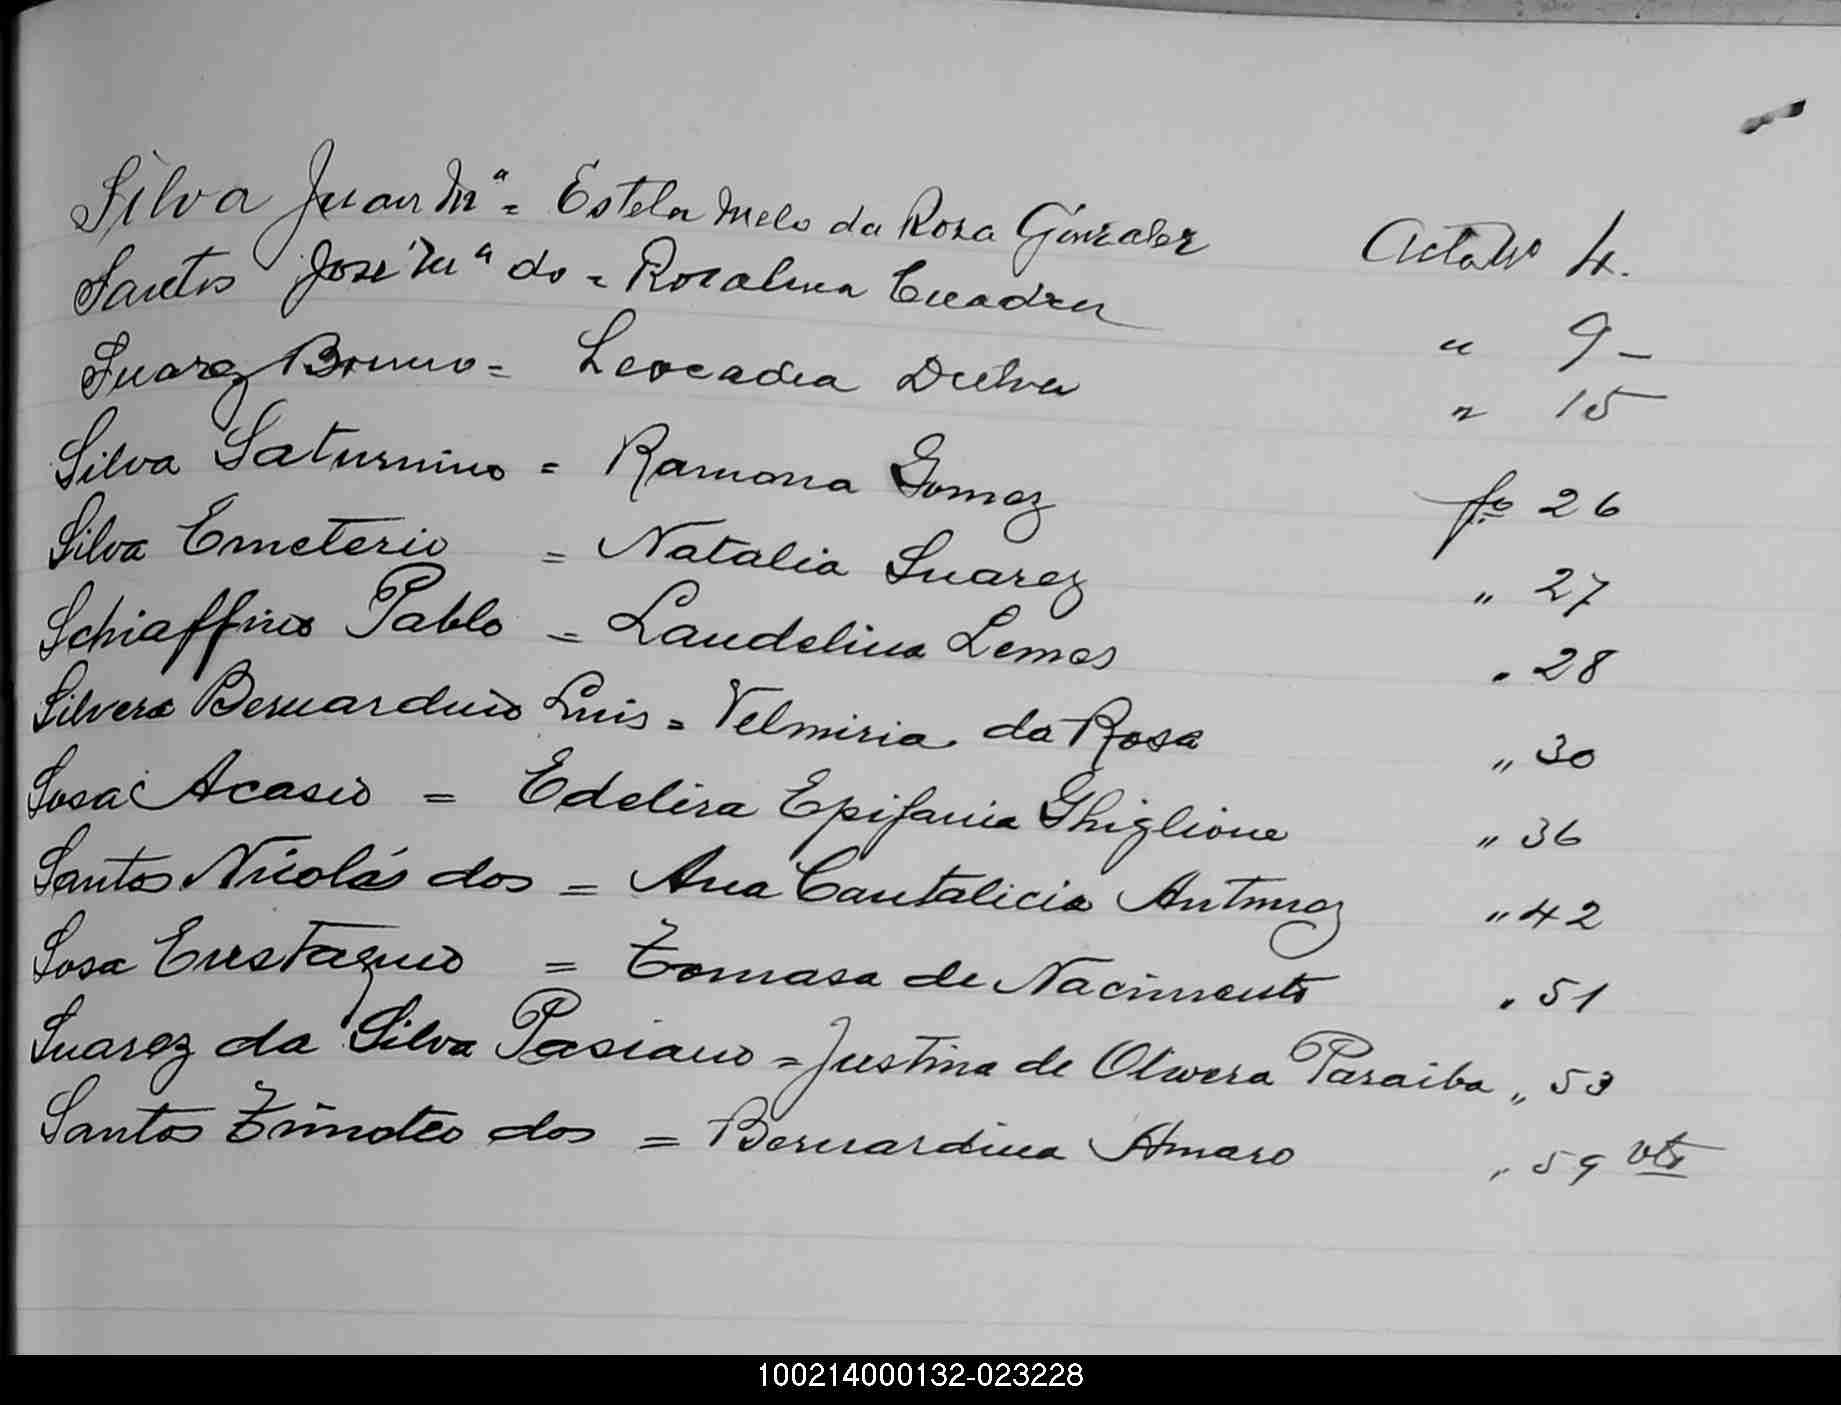 Silva Juan Mª = Estela Melo da Rosa Gonzalez Acta Nº 4.
Santos José Mª do = Rosalina Cuadra " 9 –
Suarez Bruno = Leocadia Dutra " 15
Silva Saturnino = Ramona Gomez fº 26
Silva Emeterio = Natalia Suarez " 27
Schiaffino Pablo = Laudelina Lemos " 28
Silvera Bernardino Luis = Velmiria da Rosa " 30
Sosa Acasio = Edelira Epifania Ghiglione " 36
Santos Nicolás dos = Ana Cantalicia Antunez " 42
Sosa Eustaquio = Tomasa de Nacimento " 51
Suarez da Silva Pasiano = Justina de Olivera Paraiba " 53
Santos Timoteo dos = Bernardina Amaro " 59 vta
100214000132-023228